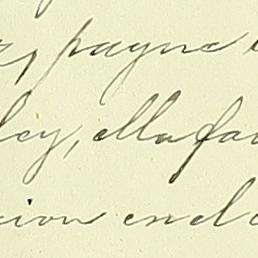 payne
ley, ella fa
sion encl